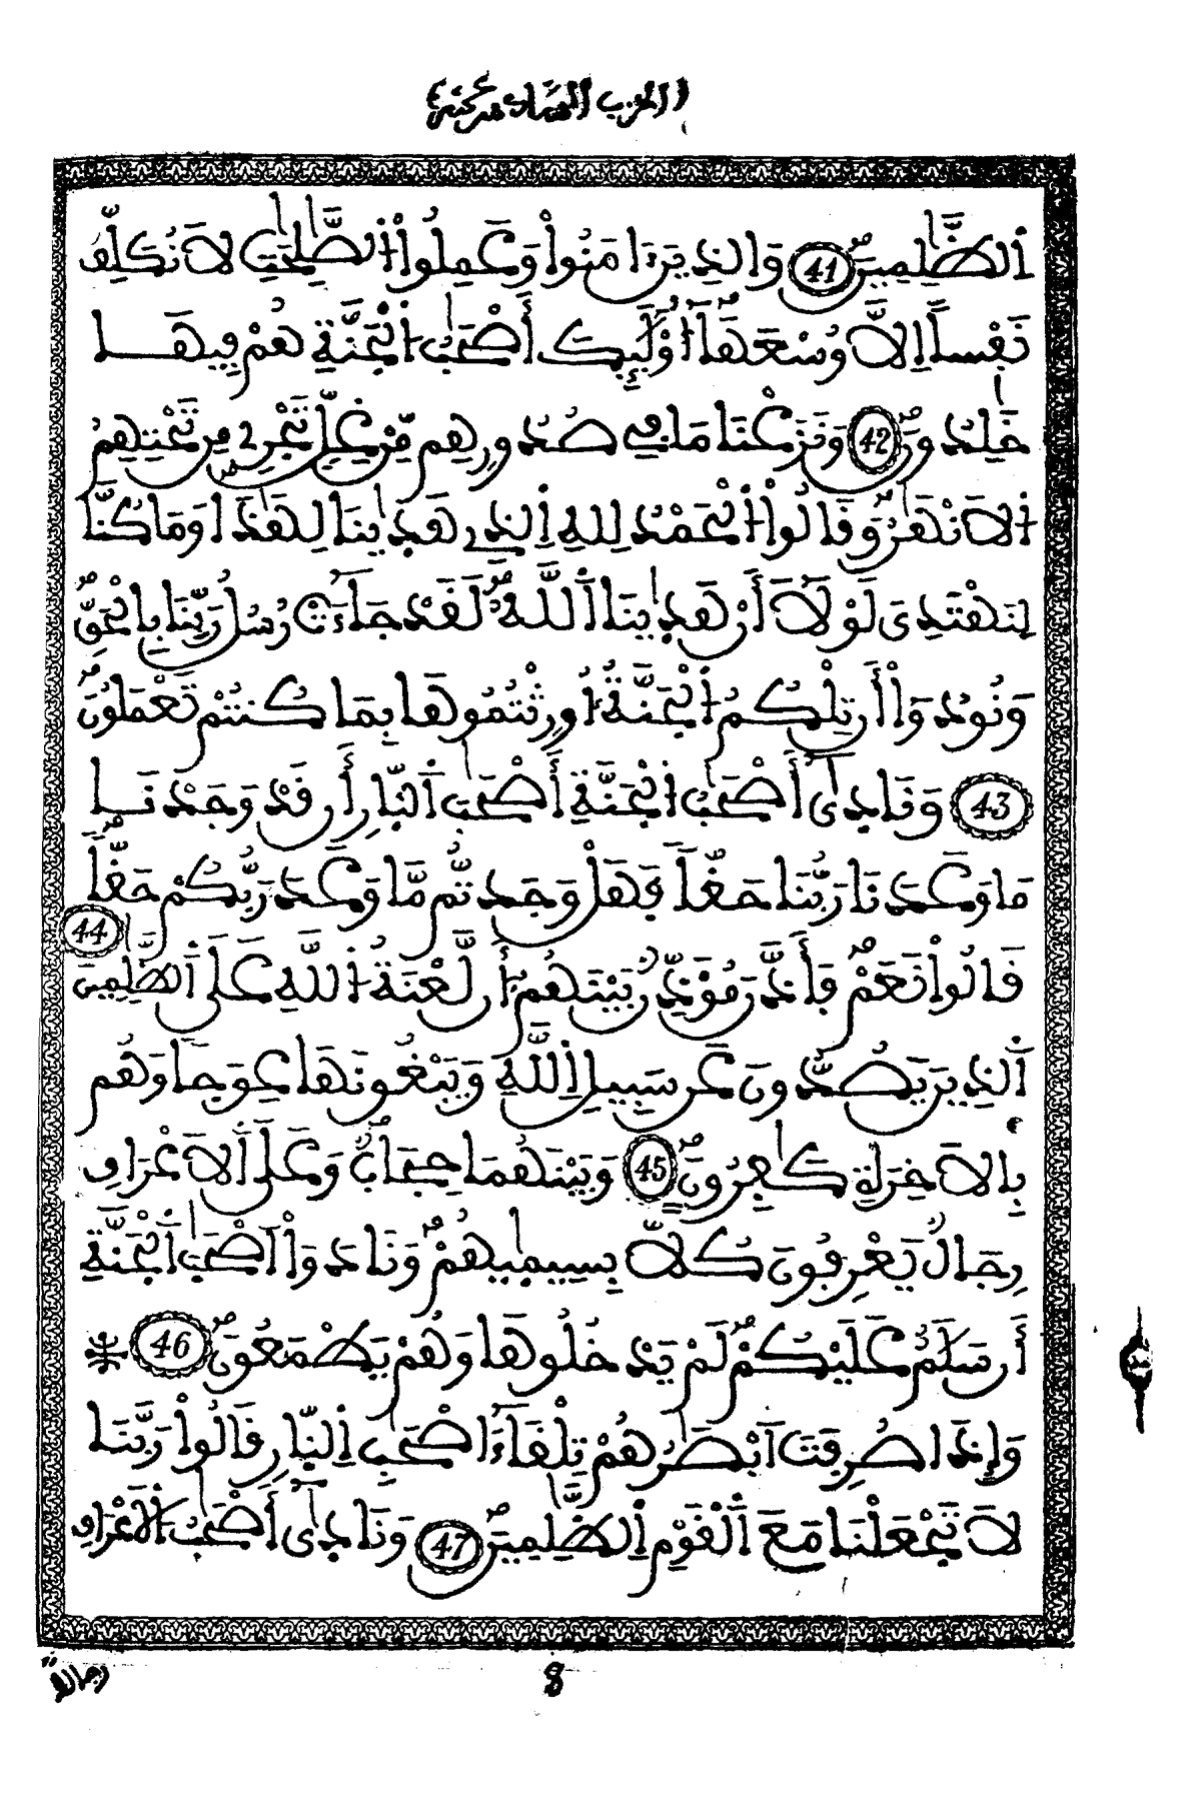 الحزب السادس عشر
اَ۬لظَّٰلِمِينَۖ 41 وَالذِينَ ءَامَنُواْ وَعَمِلُواْ اُ۬لصَّٰلِحَٰتِ لَا نُكَلِّفُ
نَفْساً اِلَّا وُسْعَهَآ أُوْلَٰٓئِكَ أَصْحَٰبُ اُ۬لْجَنَّةِ هُمْ فِيهَا
خَٰلِدُونَۖ 42 وَنَزَعْنَا مَا فِے صُدُورِهِم مِّنْ غِلّٖ تَجْرِے مِن تَحْتِهِمُ
اُ۬لَانْهَٰرُۖ وَقَالُواْ اُ۬لْحَمْدُ لِلهِ اِ۬لذِے هَد۪يٰنَا لِهَٰذَا وَمَا كُنَّا
لِنَهْتَدِيَ لَوْلَآ أَنْ هَد۪يٰنَا اَ۬للَّهُۖ لَقَدْ جَآءَتْ رُسُلُ رَبِّنَا بِالْحَقِّۖ
وَنُودُوٓاْ أَن تِلْكُمُ اُ۬لْجَنَّةُ أُورِثْتُمُوهَا بِمَا كُنتُمْ تَعْمَلُونَۖ
43 وَنَاد۪يٰٓ أَصْحَٰبُ اُ۬لْجَنَّةِ أَصْحَٰبَ اَ۬لنّ۪ارِ أَن قَدْ وَجَدْنَا
مَا وَعَدَنَا رَبُّنَا حَقّاٗ فَهَلْ وَجَدتُّم مَّا وَعَدَ رَبُّكُمْ حَقّاٗۖ
قَالُواْ نَعَمْۖ فَأَذَّنَ مُؤَذِّنُۢ بَيْنَهُمُۥٓ أَن لَّعْنَةُ اُ۬للَّهِ عَلَى اَ۬لظَّٰلِمِينَ 44
اَ۬لذِينَ يَصُدُّونَ عَن سَبِيلِ اِ۬للَّهِ وَيَبْغُونَهَا عِوَجاٗ وَهُم
بِالَاخِرَةِ كَٰفِرُونَۖ 45 وَبَيْنَهُمَا حِجَابٞۖ وَعَلَى اَ۬لَاعْرَافِ
رِجَالٞ يَعْرِفُونَ كُلَّاۢ بِسِيم۪يٰهُمْۖ وَنَادَوَاْ اَصْحَٰبَ اَ۬لْجَنَّةِ
أَن سَلَٰمٌ عَلَيْكُمْۖ لَمْ يَدْخُلُوهَا وَهُمْ يَطْمَعُونَۖ 46
وَإِذَا صُرِفَتَ اَبْصَٰرُهُمْ تِلْقَآءَ اَصْحَٰبِ اِ۬لنّ۪ارِ قَالُواْ رَبَّنَا
لَا تَجْعَلْنَا مَعَ اَ۬لْقَوْمِ اِ۬لظَّٰلِمِينَۖ 47 وَنَاد۪يٰٓ أَصْحَٰبُ اُ۬لَاعْرَافِ
رجالا
8